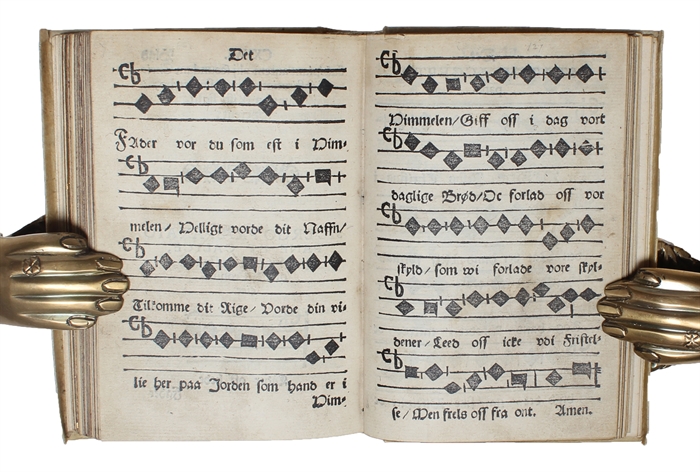 Det
FAder vor du som est i Him-
melen/ Helligt vorde dit Naffn/
Tilkomme dit Rige/ Vorde din vi-
lie her paa Jorden som hand er i
Him-
Himmelen/Giff oss i dag vort
daglige Brød/Oc forlad oss vor
skyld/ som wi forlade vore skyl-
dener/ Leed oss icke vdi Fristel-
se/ Men frels oss fra ont. Amen.